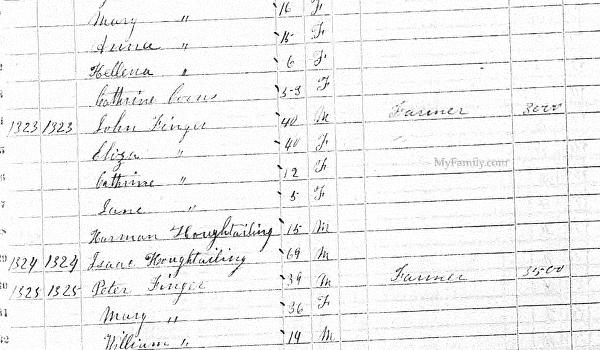 Mary " 16 F
Anna " 15 F
Hellena " 6 F
Cathrine 53 F
1323 1323 John Finger 40 M Farmer 3000
Eliza " 40 F
MyFamily.com
Cathrine " 12 F
Jane " 5 F
Harman Houghtailing 15 M
1324 1324 Isaac Houghtailing 69 M
1325 1325 Peter Finger 39 M Farmer 3500
Mary " 36 F
William " 14 M